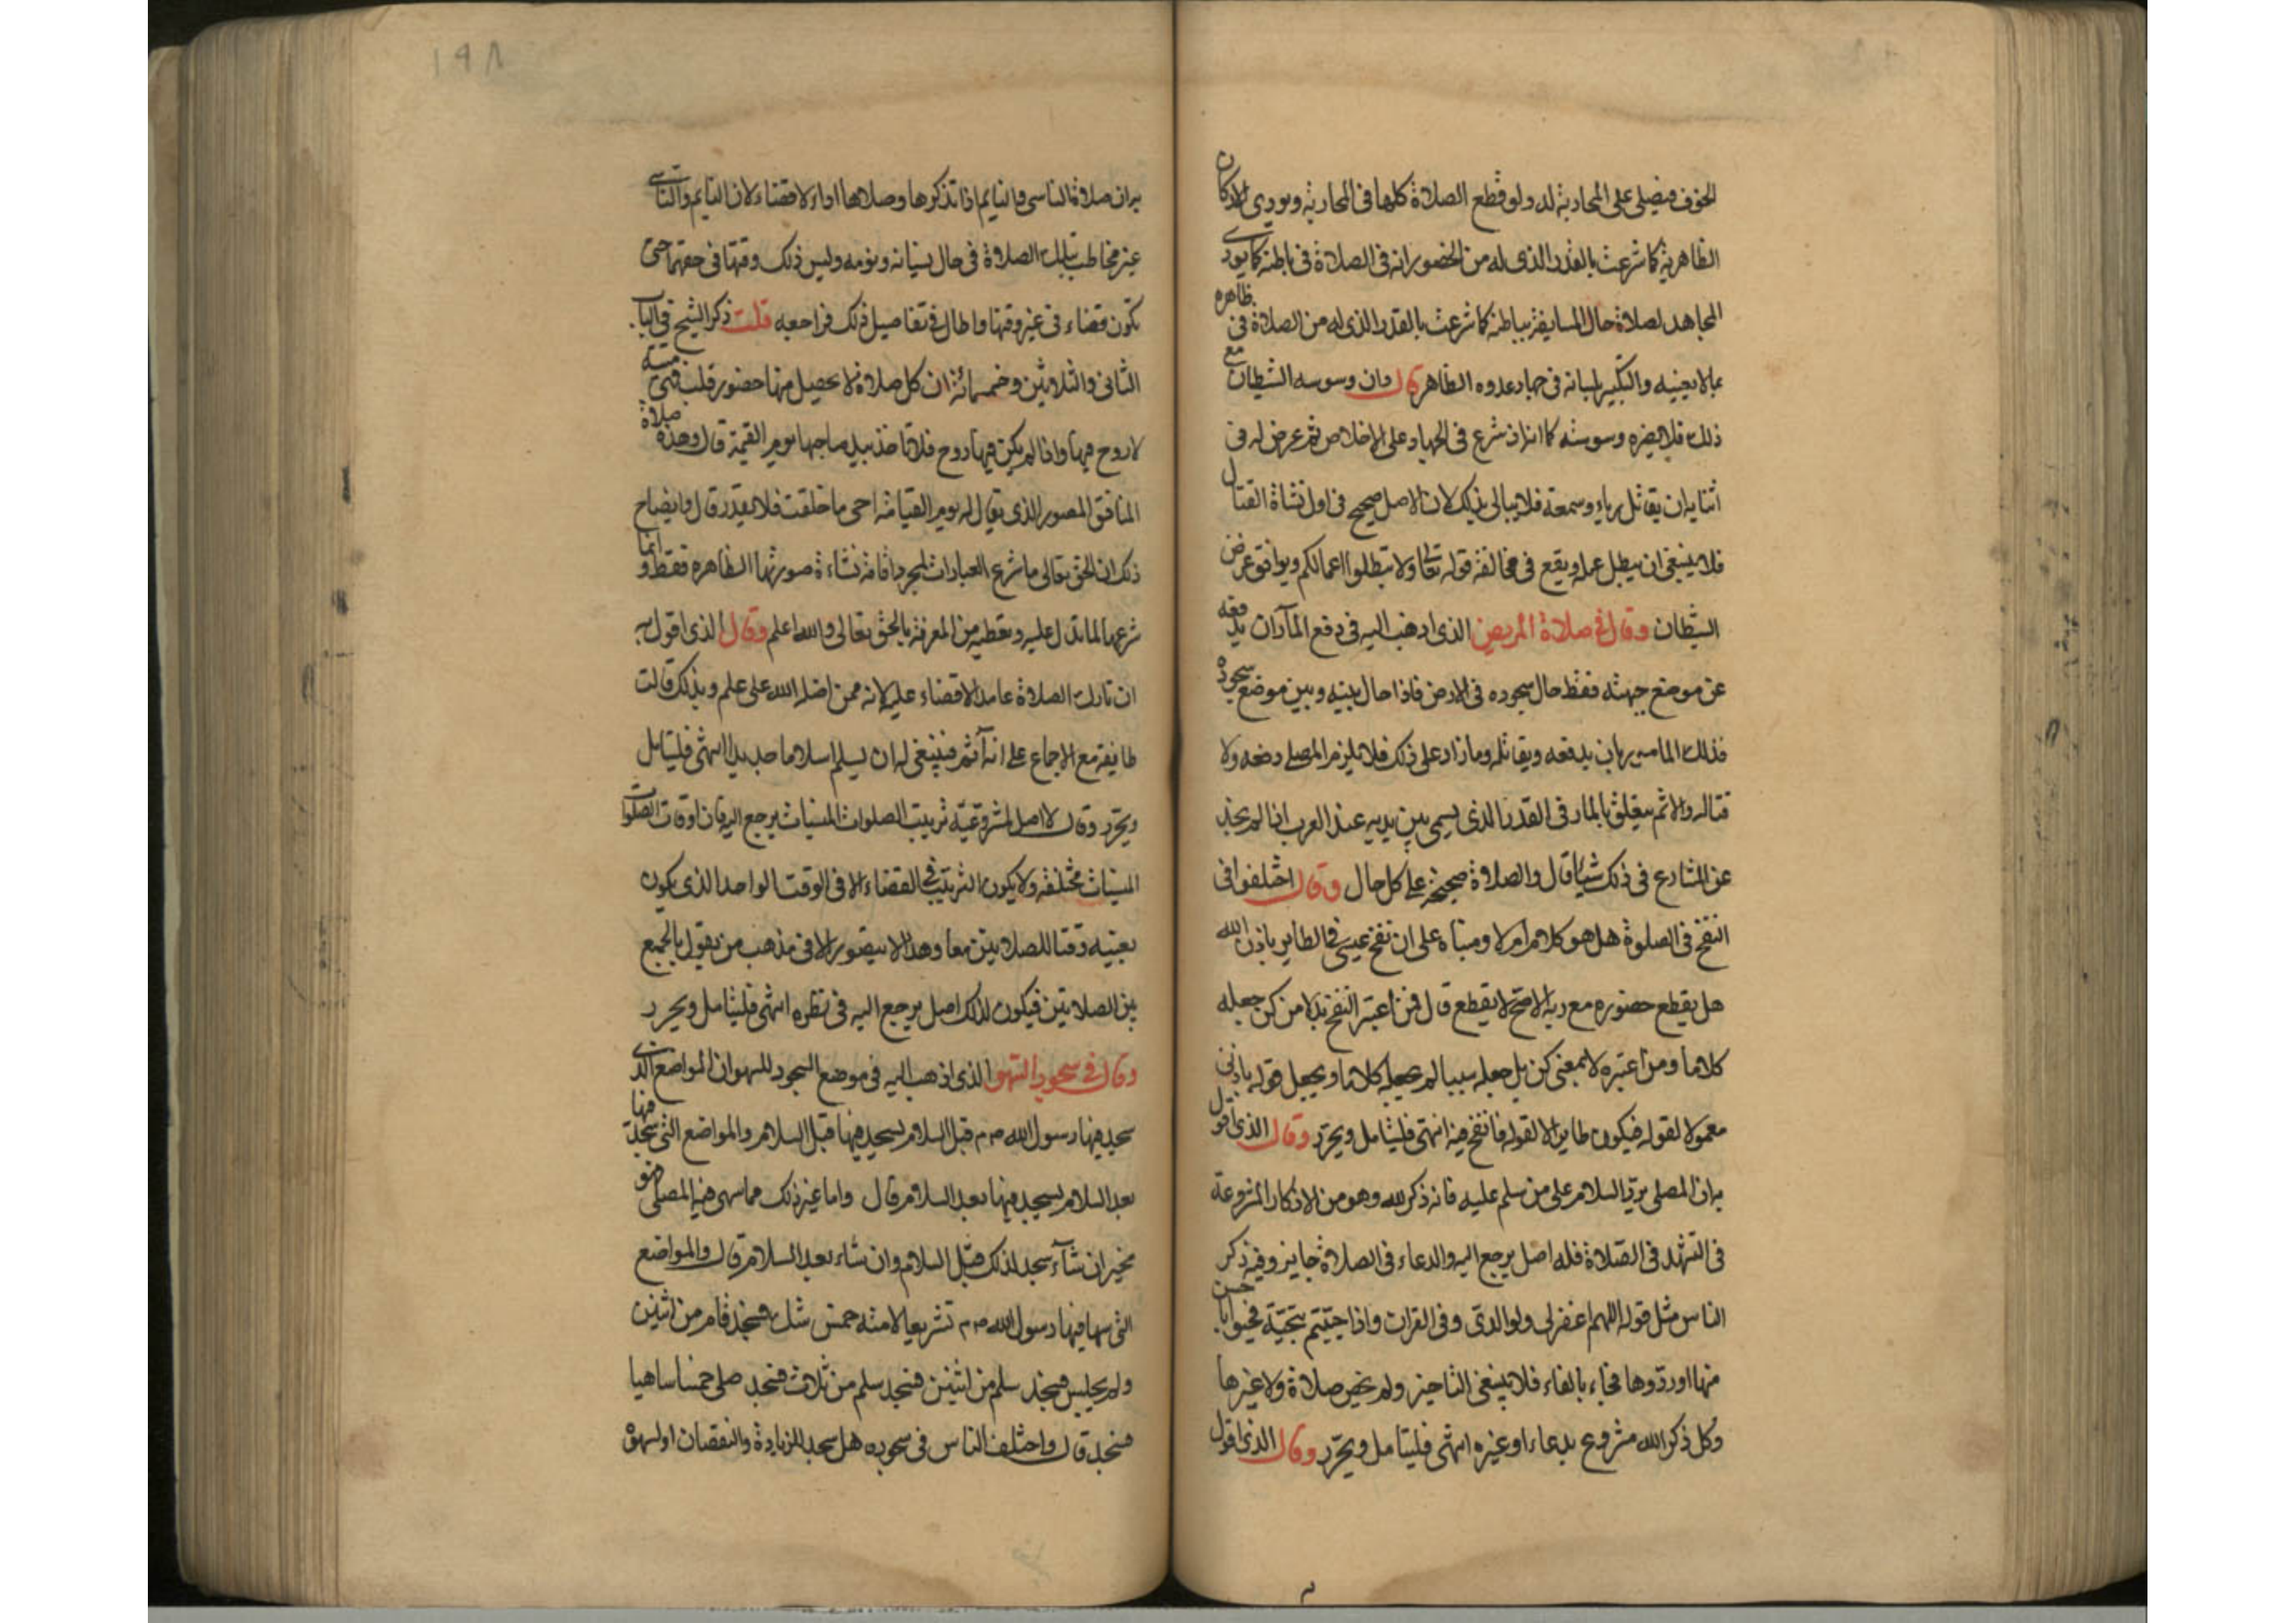 الخوف فيصلي على المحاربة له ولو قطع الصلاة كلها في المحاربة ويودي الاركان
الظاهرية كما شرعت بالقدر الذي له من الحضور انه في الصلاة في باطنه كما يودي
المجاهد لصلاة حال المسايفة بباطنه كما شرعت بالقدر الذي له من الصلاة في ظاهره
بما لا يعينيه والتكبير بلسانه في جهاد عدوه الظاهر قال وان وسوسه الشيطان مع
ذلك فلا يضره وسوسته كما انه اذ شرع في الجهاد على الاخلاص ثم عرض له في
اثنايه ان يقاتل رياء وسمعة فلا يبالي بذلك لان الاصل صحيح في اول نشاة القتال
فلا ينبغي ان يبطل عمله ويقع في مخالفة قوله تعالى ولا تبطلوا اعمالكم ويوافق غرض
الشيطان وقال في صلاة المريض الذي اذهب اليه في دفع المآر ان يدفعه
عن موضع جبهته فقط حال سجوده في الارض فاذا حال بينه وبين موضع سجوده
فذلك المامور بان يدفعه ويقاتله وما زاد على ذلك فلا يلزم المصلي دفعه ولا
قتاله والاثم يتعلق بالمار في القدر الذي يسمى بين يديه عند العرب اذا لم يحد
عن الشارع في ذلك شيأ قال والصلاة صحيحة على كل حال وقال اختلفوا في
النفخ في الصلوة هل هو كلام ام لا ومبناه على ان نفخ عيسى في الطاير باذن الله
هل يقطع حضوره مع ربه الاصح لا يقطع قال فمن اعتبر النفخ بدلا من كن جعله
كلاما ومن اعتبره لا بمعنى كن بل جعله سببا لم يجعله كلاما ويجعل قوله باذني
معمولا لقوله فيكون طايرا لا لقوله فانفخ فيه انتهى فليتامل ويحرر وقال الذي اقول
به ان المصلي يرد السلام على من سلم عليه فانه ذكر لله وهو من الاذكار المشروعة
في التشهد في الصلاة فله اصل يرجع اليه والدعاء في الصلاة جايز وفيه ذكر
الناس مثل قوله اللهم اغفر لي ولوالدي وفي القران واذا حييتم بتحية فحيوا باحسن
منها او ردوها فجاء بالفاء فلا ينبغي التاخير ولم يخص صلاة ولا غيرها
وكل ذكر الله مشروع بدعاء او غيره انتهى فليتامل ويحرر وقال الذي اقول
به ان صلاة الناسي والنايم اذا تذكرها وصلاها اداء لا قضاء لان النايم والناسي
غير مخاطب بتلك الصلاة في حال نسيانه ونومه وليس ذلك وقتها في حقهما حتى
تكون قضاء في غير وقتها واطال في تفاصيل ذلك فراجعه قلت ذكر الشيخ في الباب
الثاني والثلاثين وخمسمائة ان كل صلاة لا يحصل منها حضور قلب فهي ميتة
لا روح فيها واذا لم يكن فيها روح فلا تاخذ بيد صاحبها يوم القيمة قال وهذه صلاة
المنافق المصور الذي يقال له يوم القيامة احي ما خلقت فلا يقدر قال وايضاح
ذلك ان الحق تعالى ما شرع العبادات لمجرد اقامة نشاءة صورتها الظاهره فقط وانما
شرعها لما تدل عليه وتعطيه من المعرفة بالحق تعالى والله اعلم وقال الذي اقول به
ان تارك الصلاة عامدا لا قضاء عليه لانه ممن اضله الله على علم وبذلك قالت
طايفة مع الاجماع على انه آثم فينبغي له ان يسلم اسلاما جديدا انتهى فليتامل
ويحرر وقال لا اصل لمشروعية ترتيب الصلوات المنسيات يرجع اليه فان اوقات الصلوات
المنسيات مختلفة ولا يكون الترتيب في القضاء الا في الوقت الواحد الذي يكون
بعينه وقتا للصلاتين معا وهذا لا يتصور الا في مذهب من يقول بالجمع
بين الصلاتين فيكون لذلك اصل يرجع اليه في نظره انتهى فليتامل ويحرر
وقال في سجود السهو الذي اذهب اليه في موضع السجود للسهو ان المواضع الذي
سجد فيها رسول الله صم قبل السلام يسجد فيها قبل السلام والمواضع التي سجد فيها
بعد السلام يسجد فيها بعد السلام قال واما غير ذلك مما سهى فيه المصلي فهو
مخير ان شآء سجد لذلك قبل السلام وان شاء بعد السلام قال والمواضع
التي سها فيها رسول الله صم تشريعا لامته خمس شك فسجد قام من اثنين
ولم يجلس فسجد سلم من اثنين فسجد سلم من ثلاث فسجد صلى خمسا ساهيا
فسجد قال واختلف الناس في سجوده هل سجد للزيادة والنقصان او لسهوه
١٩٨